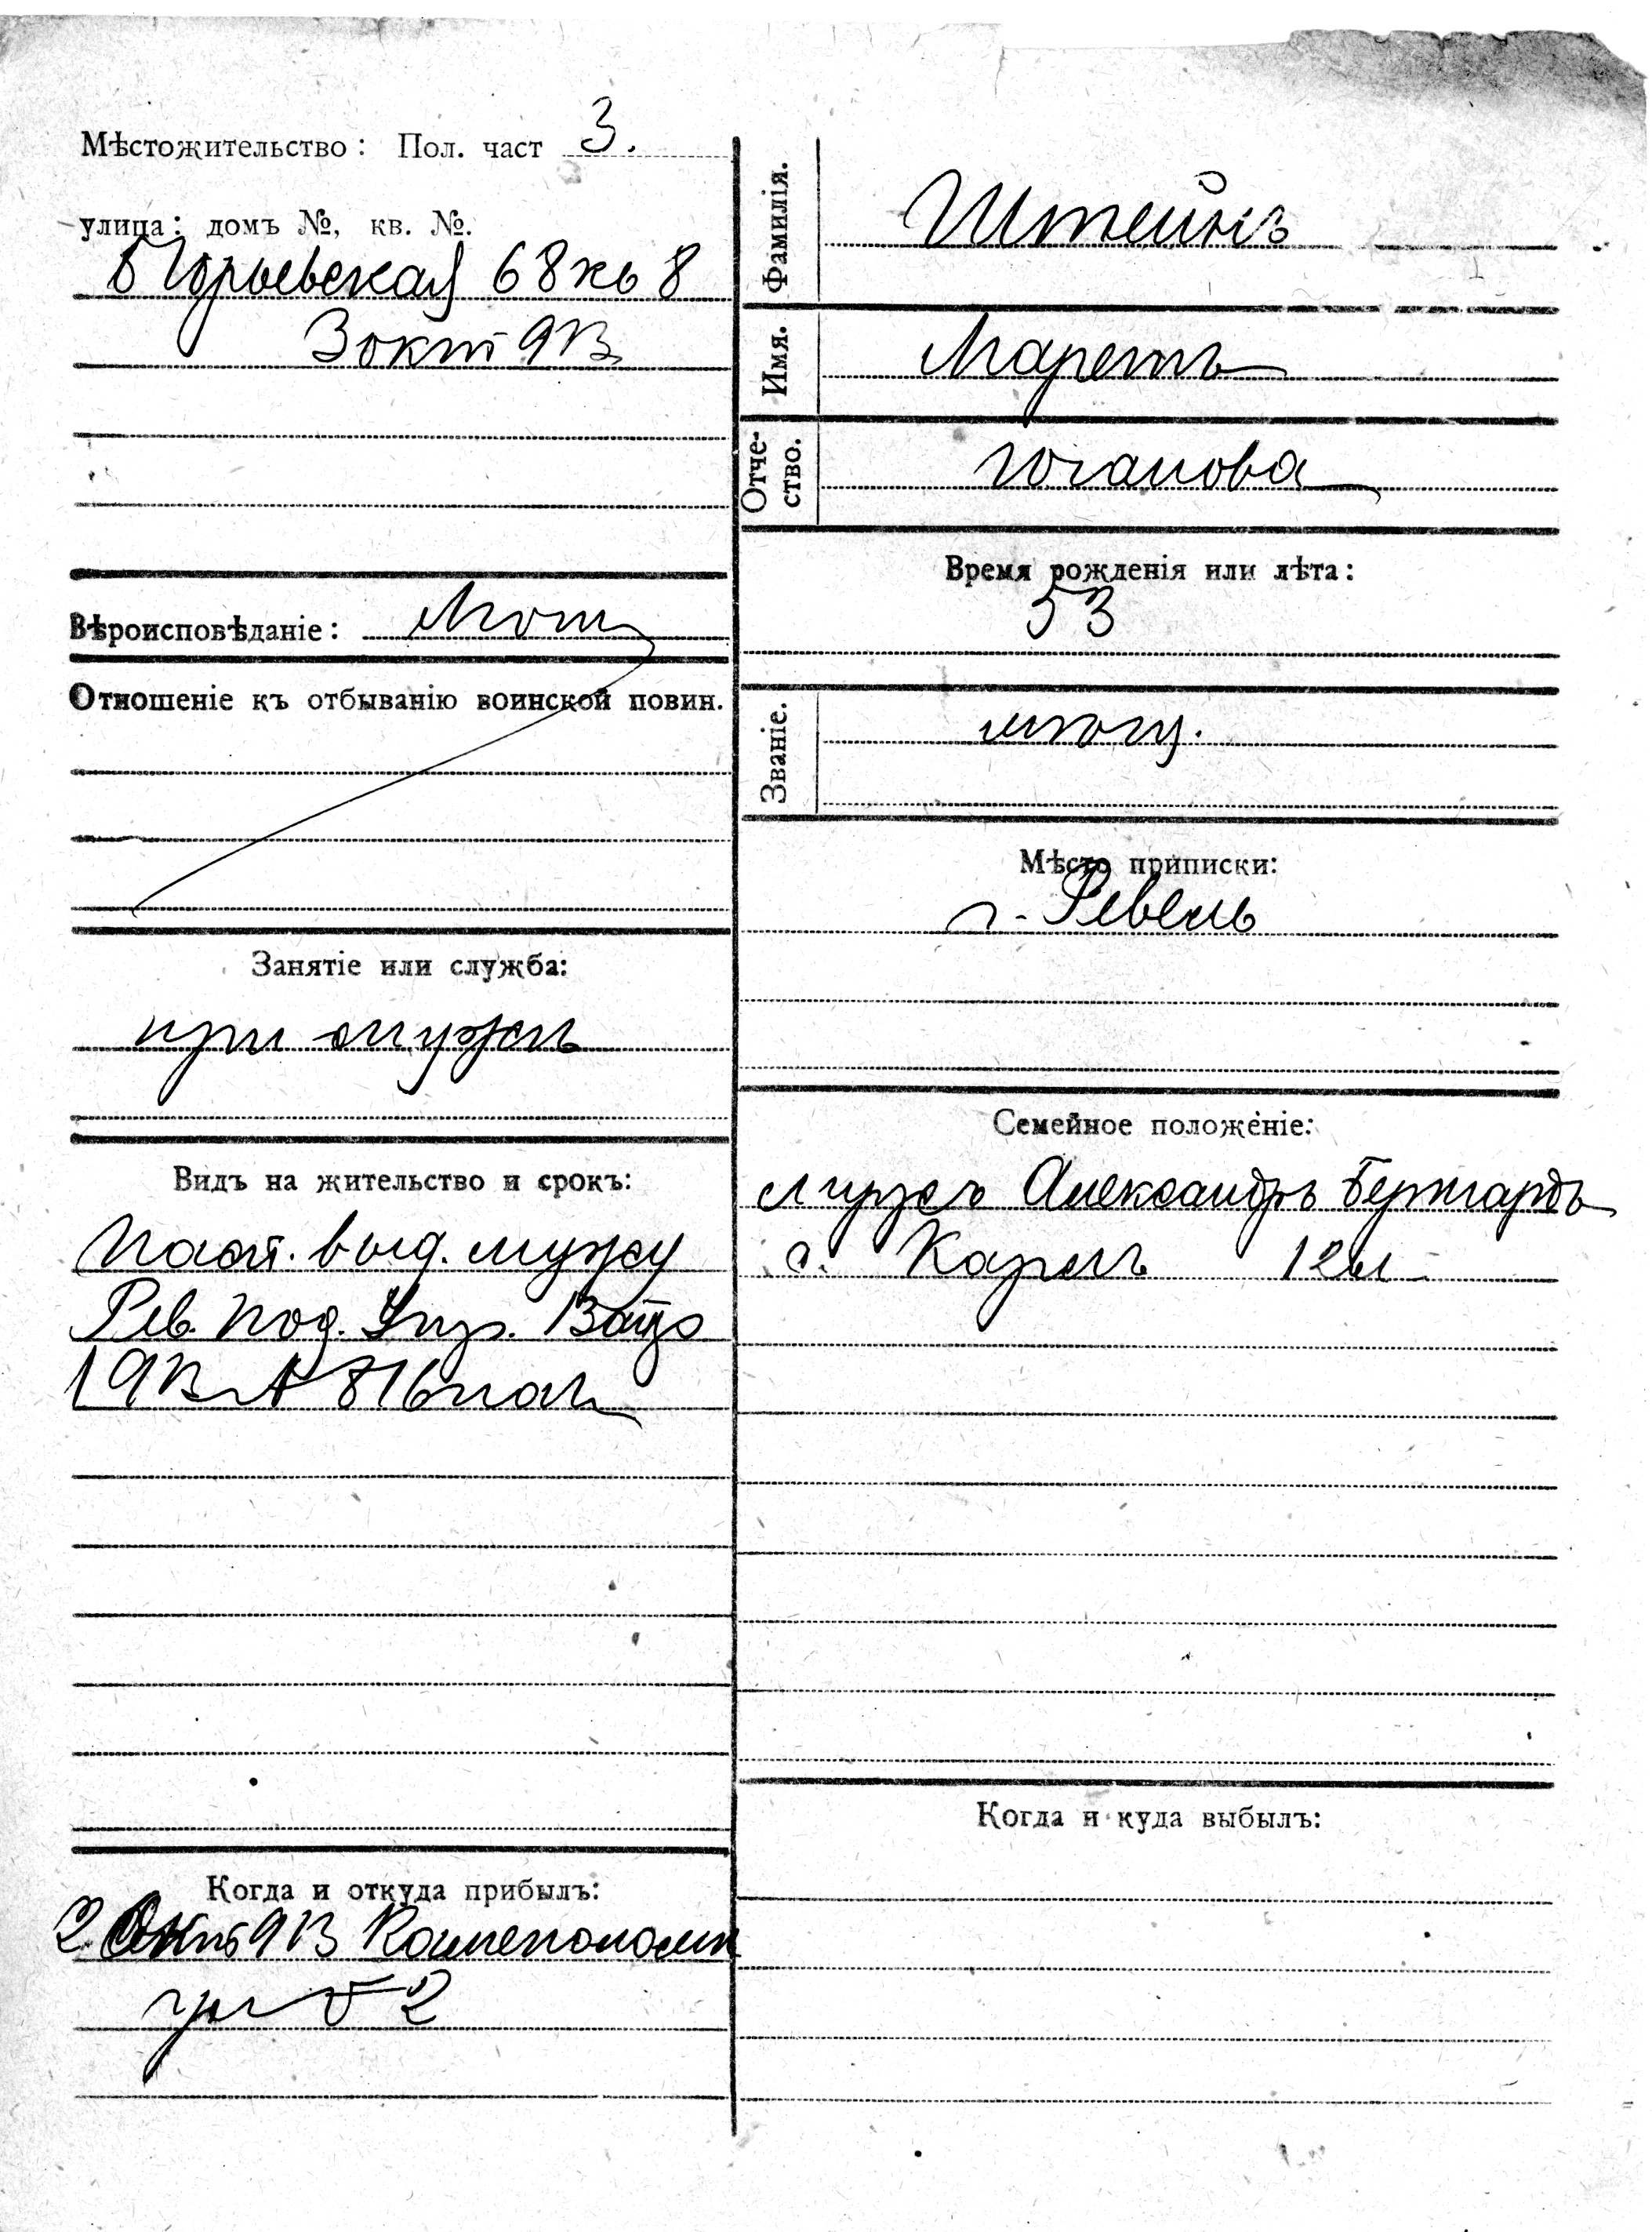 Мѣстожительство: Пол. част 3.
улица: домъ №, кв. №.
Б Юрьевская 68 кв 8
3 окт 913
Вѣроисповѣданіе: Лют
Отношеніе къ отбыванію воинской повин.
Занятіе или служба:
при мужѣ
Видъ на жительство и срокъ:
Пасп. выд. мужу
Рев. Под. Упр.
1913 № 816
Когда и откуда прибылъ:
2 Окт 913
№ 52
Фамилія.
Штейнъ
Имя.
Маретъ
Отче-
ство.
Юганова
Время рожденія или лѣта:
53
Званіе.
мѣщ.
Мѣсто приписки:
г. Ревель
Семейное положеніе:
мужъ Александръ Бернгардъ
с. Карлъ 12 л
Когда и куда выбылъ: